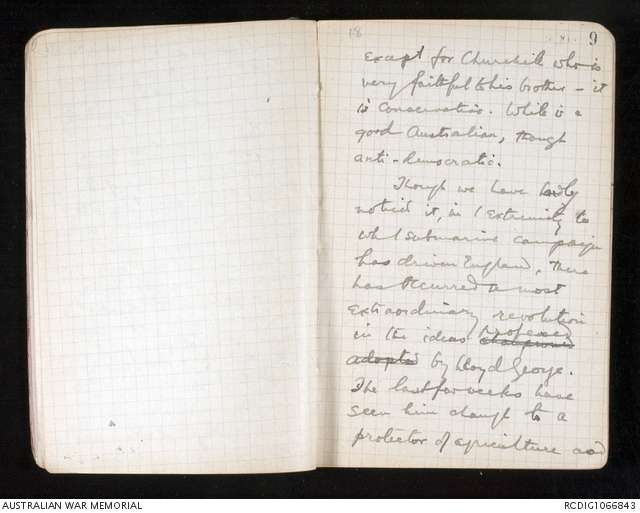 18
9
except for Churchill who is
very faithful to his brother - it
is conservative. White is a
good Australian, though
anti-democratic.
Though we have hardly
noticed it, in / extremity to
wh / submarine campaign
has driven England, there
has occurred a most
extraordinary revolution
in the ideas championed professed
adopted by Lloyd George.
The last few weeks have
seen him change to a
protector of agriculture and
AUSTRALIAN WAR MEMORIAL
RCDIG1066843